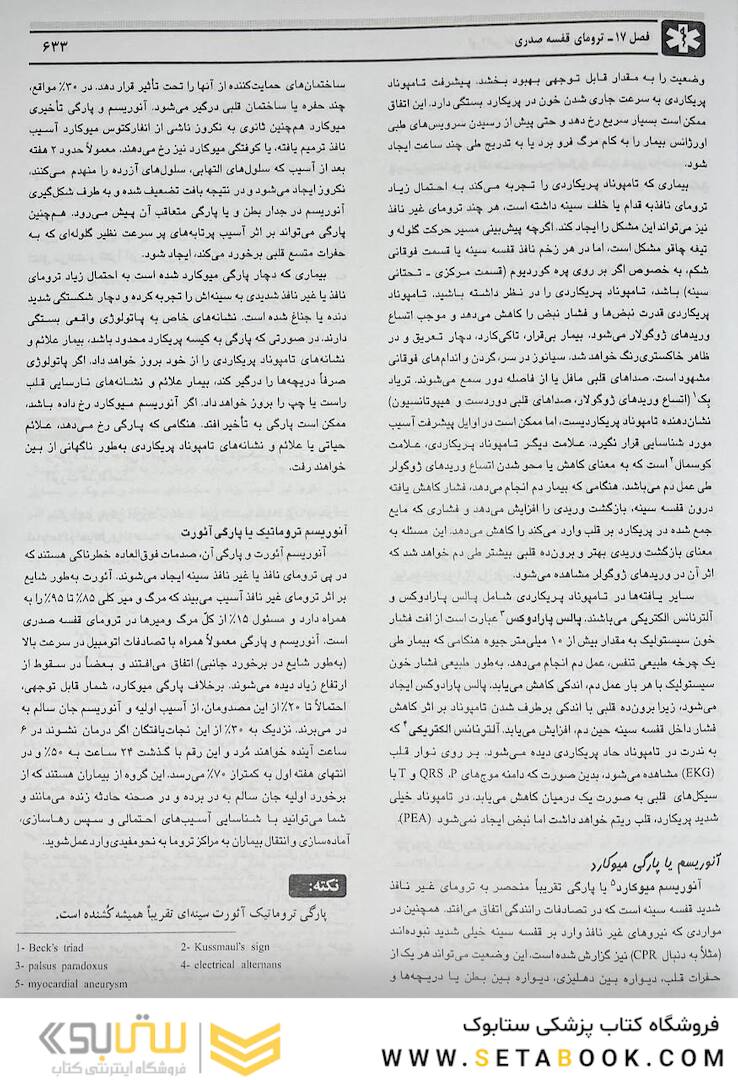 فصل ۱۷ - ترومای قفسه صدری
۶۳۳
وضعیت را به مقدار قابل توجهی بهبود بخشد. پیشرفت تامپوناد
پریکاردی به سرعت جاری شدن خون در پریکارد بستگی دارد. این اتفاق
ممکن است بسیار سریع رخ دهد و حتی پیش از رسیدن سرویس‌های طبی
اورژانس بیمار را به کام مرگ فرو برد یا به تدریج طی چند ساعت ایجاد
شود.
بیماری که تامپوناد پریکاردی را تجربه می‌کند به احتمال زیاد
ترومای نافذبه قدام یا خلف سینه داشته است، هر چند ترومای غیر نافذ
نیز می‌تواند این مشکل را ایجاد کند. اگرچه پیش‌بینی مسیر حرکت گلوله و
تیغه چاقو مشکل است، اما در هر زخم نافذ قفسه سینه یا قسمت فوقانی
شکم، به خصوص اگر بر روی پره کوردیوم (قسمت مرکزی - تحتانی
سینه) باشد، تامپوناد پریکاردی را در نظر داشته باشید. تامپوناد
پریکاردی قدرت نبض‌ها و فشار نبض را کاهش می‌دهد و موجب اتساع
وریدهای ژوگولار می‌شود. بیمار بی‌قرار، تاکی‌کارد، دچار تعریق و در
ظاهر خاکستری‌رنگ خواهد شد. سیانوز در سر، گردن و اندام‌های فوقانی
مشهود است. صداهای قلبی مافل یا از فاصله دور سمع می‌شوند. تریاد
بِک۱ (اتساع وریدهای ژوگولار، صداهای قلبی دوردست و هیپوتانسیون)
نشان‌دهنده تامپوناد پریکاردیست، اما ممکن است در اوایل پیشرفت آسیب
مورد شناسایی قرار نگیرد. علامت دیگر تامپوناد پریکاردی، علامت
کوسمال۲ است که به معنای کاهش یا محو شدن اتساع وریدهای ژوگولر
طی عمل دم می‌باشد. هنگامی که بیمار دم انجام می‌دهد، فشار کاهش یافته
درون قفسه سینه، بازگشت وریدی را افزایش می‌دهد و فشاری که مایع
جمع شده در پریکارد بر قلب وارد می‌کند را کاهش می‌دهد. این مسئله به
معنای بازگشت وریدی بهتر و برون‌ده قلبی بیشتر طی دم خواهد شد که
اثر آن در وریدهای ژوگولر مشاهده می‌شود.
سایر یافته‌ها در تامپوناد پریکاردی شامل پالس پارادوکس و
آلترنانس الکتریکی می‌باشند. پالس پارادوکس۳ عبارت است از افت فشار
خون سیستولیک به مقدار بیش از ۱۰ میلی‌متر جیوه هنگامی که بیمار طی
یک چرخه طبیعی تنفس، عمل دم انجام می‌دهد. به‌طور طبیعی فشار خون
سیستولیک با هر بار عمل دم، اندکی کاهش می‌یابد. پالس پارادوکس ایجاد
می‌شود، زیرا برون‌ده قلبی با اندکی برطرف شدن تامپوناد بر اثر کاهش
فشار داخل قفسه سینه حین دم، افزایش می‌یابد. آلترنانس الکتریکی۴ که
به ندرت در تامپوناد حاد پریکاردی دیده می‌شود. بر روی نوار قلب
(EKG) مشاهده می‌شود، بدین صورت که دامنه موج‌های QRS ،P و T با
سیکل‌های قلبی به صورت یک درمیان کاهش می‌یابد. در تامپوناد خیلی
شدید پریکارد، قلب ریتم خواهد داشت اما نبض ایجاد نمی‌شود (PEA).
آنوریسم یا پارگی میوکارد
آنوریسم میوکارد۵ یا پارگی تقریباً منحصر به ترومای غیر نافذ
شدید قفسه سینه است که در تصادفات رانندگی اتفاق می‌افتد. همچنین در
مواردی که نیروهای غیر نافذ وارد بر قفسه سینه خیلی شدید نبوده‌اند
(مثلاً به دنبال CPR) نیز گزارش شده است. این وضعیت می‌تواند هر یک از
حفرات قلب، دیواره بین دهلیزی، دیواره بین بطن یا دریچه‌ها و
ساختمان‌های حمایت‌کننده از آنها را تحت تأثیر قرار دهد. در ۳۰٪ مواقع،
چند حفره یا ساختمان قلبی درگیر می‌شود. آنوریسم و پارگی تأخیری
میوکارد هم‌چنین ثانوی به نکروز ناشی از انفارکتوس میوکارد آسیب
نافذ ترمیم یافته، یا کوفتگی میوکارد نیز رخ می‌دهند. معمولاً حدود ۲ هفته
بعد از آسیب که سلول‌های التهابی، سلول‌های آزرده را منهدم می‌کنند.
نکروز ایجاد می‌شود و در نتیجه بافت تضعیف شده و به طرف شکل‌گیری
آنوریسم در جدار بطن و یا پارگی متعاقب آن پیش می‌رود. هم‌چنین
پارگی می‌تواند بر اثر آسیب پرتابه‌های پر سرعت نظیر گلوله‌ای که به
حفرات متسع قلبی برخورد می‌کند، ایجاد شود.
بیماری که دچار پارگی میوکارد شده است به احتمال زیاد ترومای
نافذ یا غیر نافذ شدیدی به سینه‌اش را تجربه کرده و دچار شکستگی شدید
دنده یا جناغ شده است. نشانه‌های خاص به پاتولوژی واقعی بستگی
دارند. در صورتی که پارگی به کیسه پریکارد محدود باشد، بیمار علائم و
نشانه‌های تامپوناد پریکاردی را از خود بروز خواهد داد. اگر پاتولوژی
صرفاً دریچه‌ها را درگیر کند، بیمار علائم و نشانه‌های نارسایی قلب
راست یا چپ را بروز خواهد داد. اگر آنوریسم میوکارد رخ داده باشد،
ممکن است پارگی به تأخیر افتد. هنگامی که پارگی رخ می‌دهد، علائم
حیاتی یا علائم و نشانه‌های تامپوناد پریکاردی به‌طور ناگهانی از بین
خواهند رفت.
آنوریسم تروماتیک یا پارگی آئورت
آنوریسم آئورت و پارگی آن، صدمات فوق‌العاده خطرناکی هستند که
در پی ترومای نافذ یا غیر نافذ سینه ایجاد می‌شوند. آئورت به‌طور شایع
بر اثر ترومای غیر نافذ آسیب می‌بیند که مرگ و میر کلی ۸۵٪ تا ۹۵٪ را به
همراه دارد و مسئول ۱۵٪ از کلّ مرگ ومیرها در ترومای قفسه صدری
است. آنوریسم و پارگی معمولاً همراه با تصادفات اتومبیل در سرعت بالا
(به‌طور شایع در برخورد جانبی) اتفاق می‌افتند و بعضاً در سقوط از
ارتفاع زیاد دیده می‌شوند. برخلاف پارگی میوکارد، شمار قابل توجهی،
احتمالاً تا ۲۰٪ از این مصدومان، از آسیب اولیه و آنوریسم جان سالم به
در می‌برند. نزدیک به ۳۰٪ از این نجات‌یافتگان اگر درمان نشوند در ۶
ساعت آینده خواهند مُرد و این رقم با گذشت ۲۴ ساعت به ۵۰٪ و در
انتهای هفته اول به کمتراز ۷۰٪ می‌رسد. این گروه از بیماران هستند که از
برخورد اولیه جان سالم به در برده و در صحنه حادثه زنده می‌مانند و
شما می‌توانید با شناسایی آسیب‌های احتمالی و سپس رهاسازی،
آماده‌سازی و انتقال بیماران به مراکز تروما به نحو مفیدی وارد عمل شوید.
نکته:
پارگی تروماتیک آئورت سینه‌ای تقریباً همیشه کُشنده است.
1- Beck's triad
2- Kussmaul's sign
3- palsus paradoxus
4- electrical alternans
5- myocardial aneurysm
فروشگاه کتاب پزشکی ستابوک
WWW.SETABOOK.COM
ستابوک
فروشگاه اینترنتی کتاب